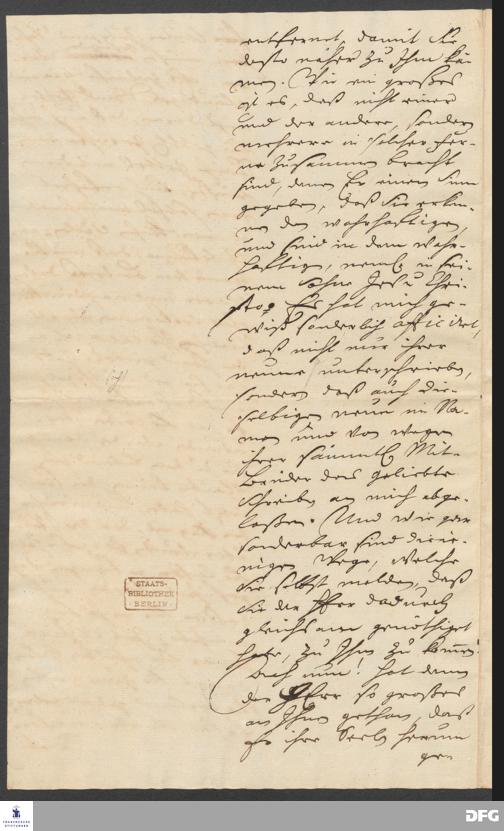 entfernet, damit Sie
desto näher zu Ihm kä-
men. Wie ein großes
ist es, daß nicht einer
und der andere, sondern
mehrere in solcher Fer-
ne zusammen bracht
sind, denen Er einen Sinn
gegeben, daß Sie erken-
nen den wahrhaftigen,
und sind in dem Wahr-
haftigen, neml. in Sei-
nem Sohne Jesu Chri-
sto. Es hat mich ge-
wiß sonderlich afficiret,
daß nicht nur ihrer
neune unterschrieben,
sondern daß auch die-
selbigen neun im Na-
men und von wegen
ihrer sämmtl. Mit-
brüder das geliebte
Schreiben an mich abge-
laßen. Und wie gar
sonderbar sind dieie-
nigen Wege, welche
Sie selbst melden, daß
Sie der HErr dadurch
gleichsam genöthiget
habe, zu Ihm zu kommen!
Ach nun! hat denn
der HErr so großes
an Ihnen gethan, daß
Er ihre Seelen herum
ge-
STAATS-
BIBLIOTHEK
BERLIN
FRANCKESCHE
STIFTUNGEN
DFG